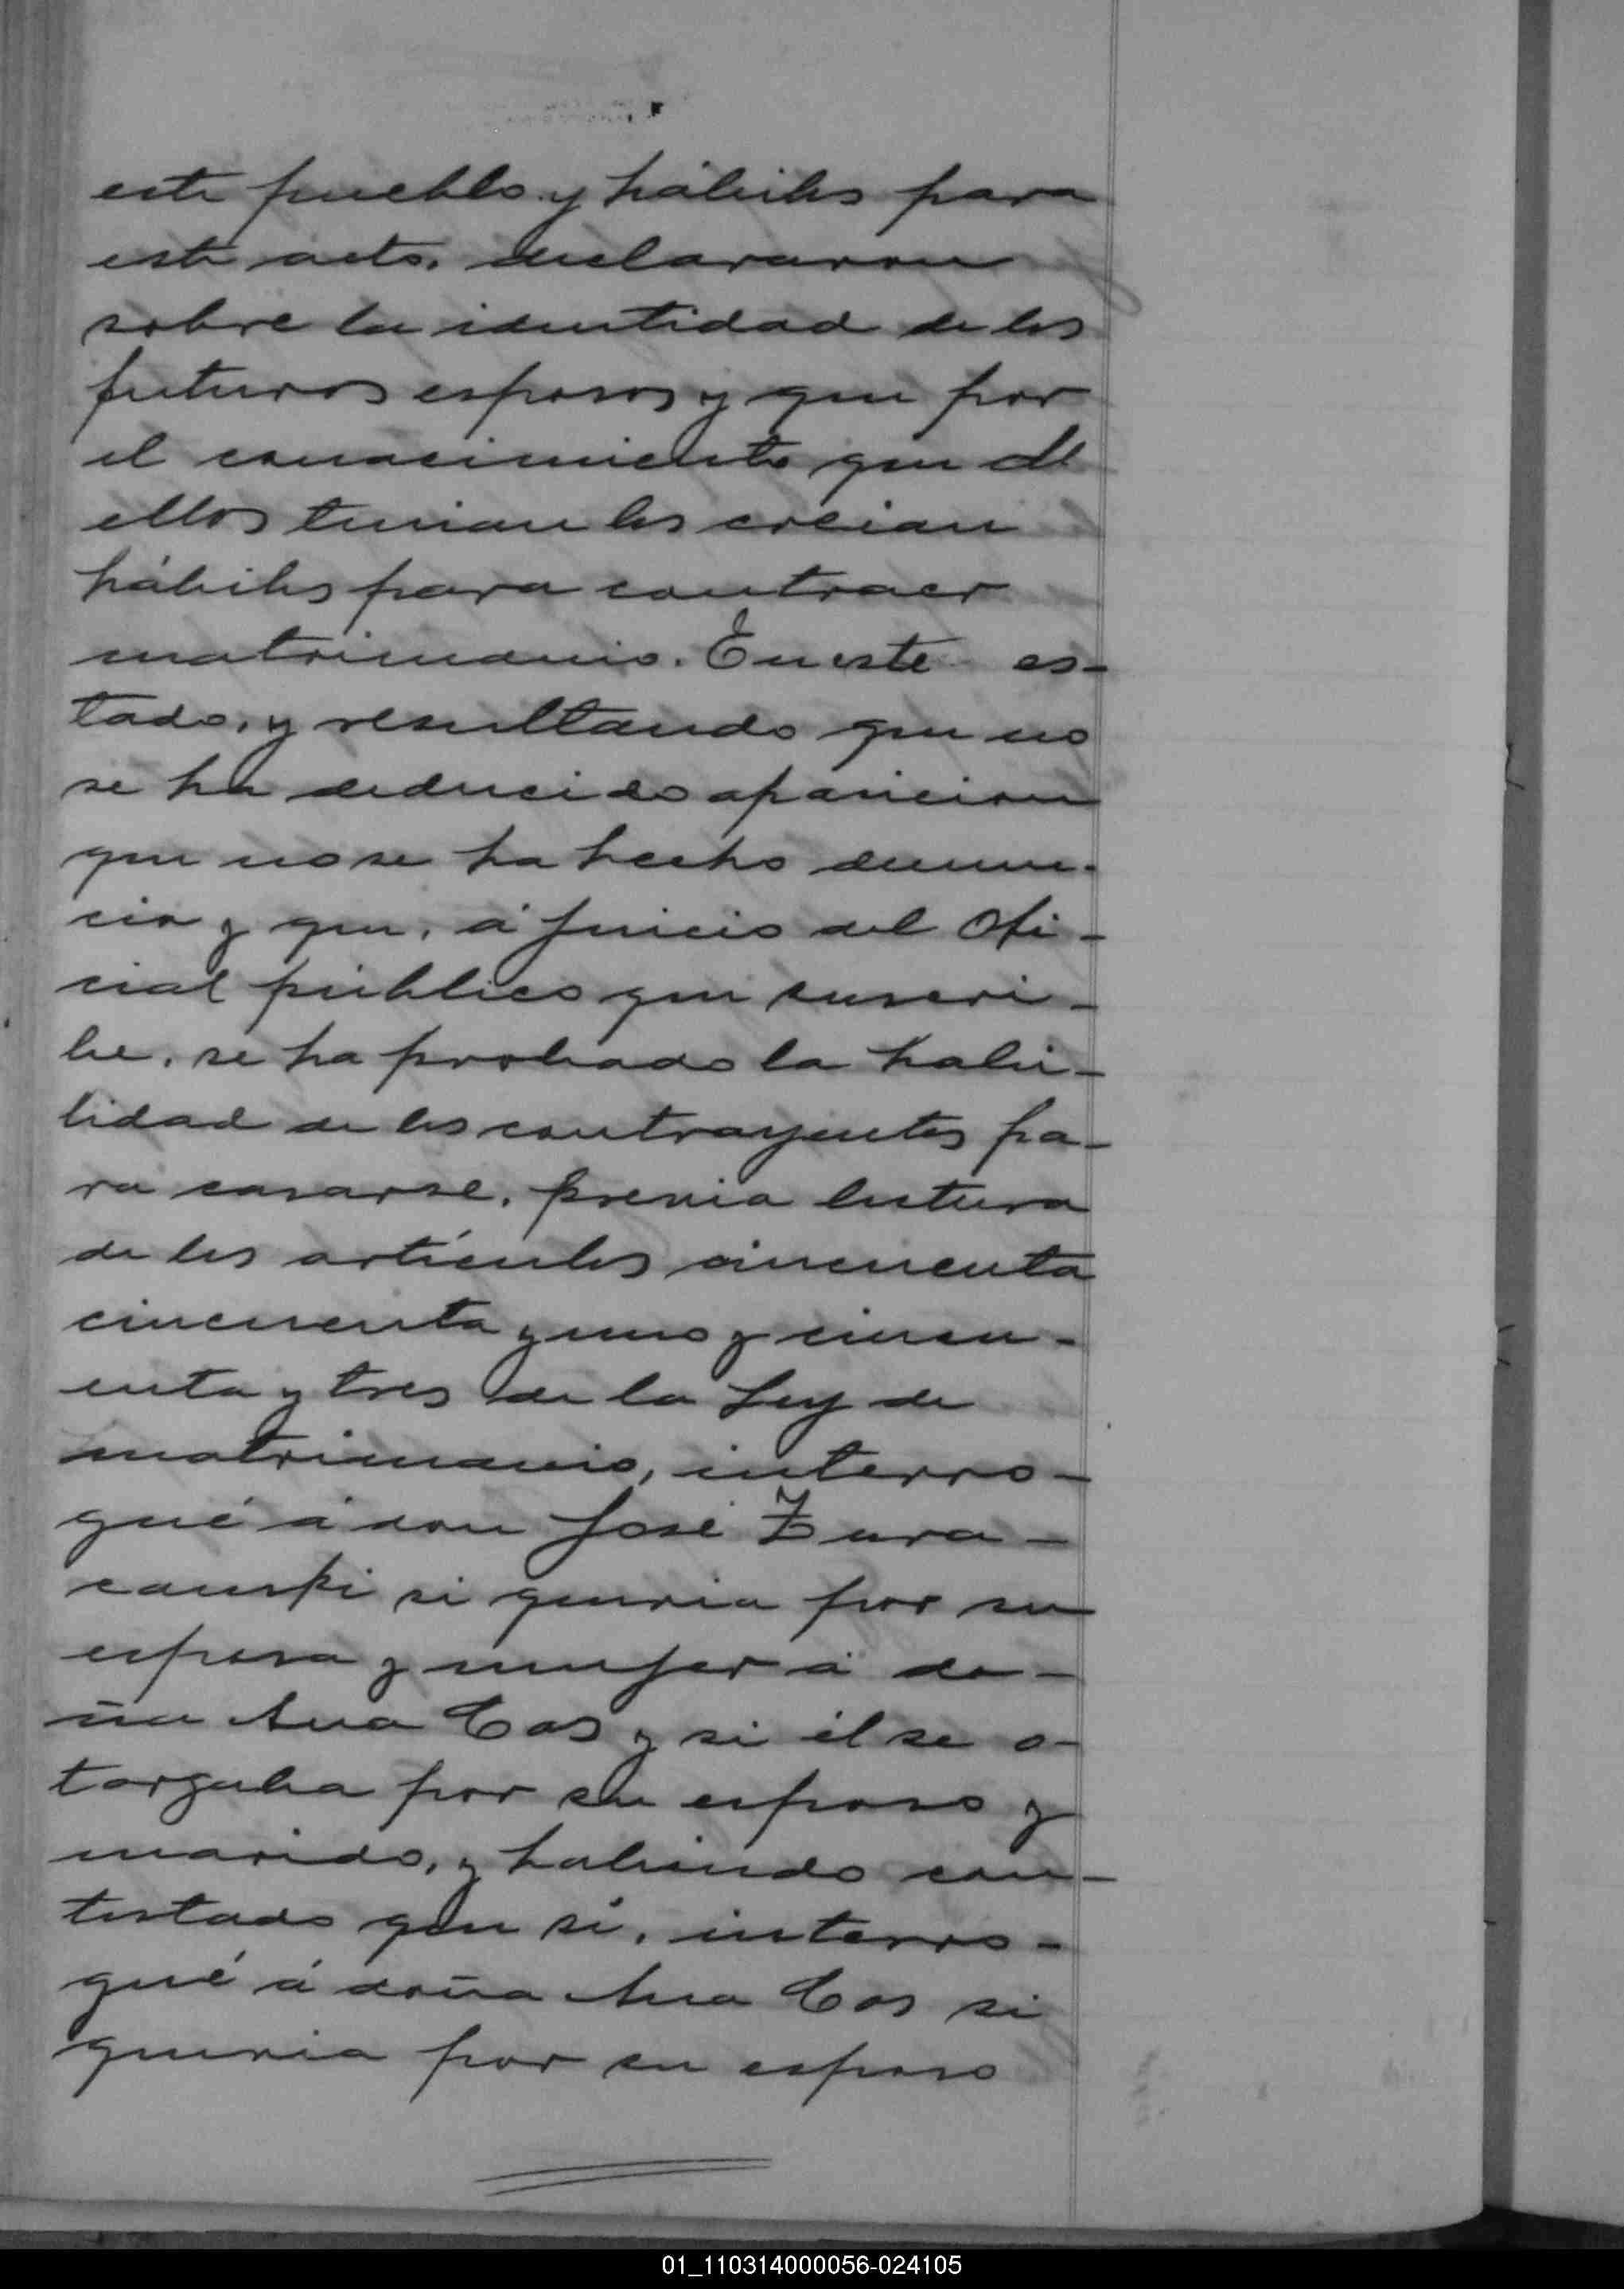 este pueblo y hábiles para
este acto, declararon
sobre la identidad de los
futuros esposos y que por
el conocimiento que de
ellos tenian los creian
hábiles para contraer
matrimonio. En este es-
tado, y resultando que no
se ha deducido oposicion
que no se ha hecho denun-
cia y que, á juicio del Ofi-
cial público que suscri-
be, se ha probado la habi-
lidad de los contrayentes pa-
ra casarse, previa lectura
de los artículos cincuenta
cincuenta y uno y cincu-
enta y tres de la Ley de
matrimonio, interro-
gué á don José Zura-
couski si queria por su
esposa y mujer á do-
ña Ana Cos y si él se o-
torgaba por su esposo y
marido, y habiendo con-
testado que si, interro-
gué á doña Ana Cos si
queria por su esposo
01_110314000056-024105